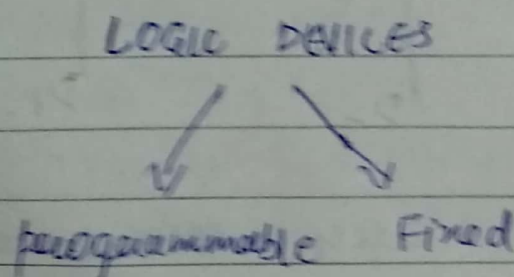 LOGIC DEVICES
programmable Fixed